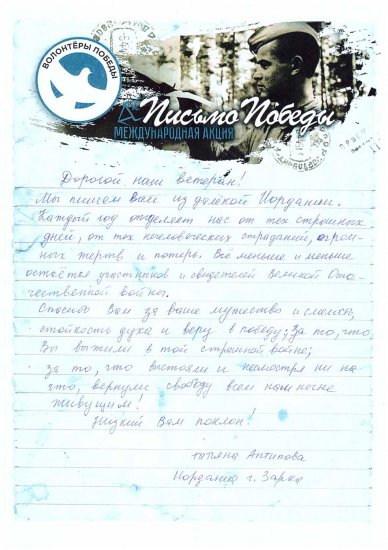 ВОЛОНТЁРЫ ПОБЕДЫ
Письмо Победы
МЕЖДУНАРОДНАЯ АКЦИЯ
Дорогой наш ветеран!
Мы пишем Вам из далёкой Иордании.
Каждый год отделяет нас от тех страшных
дней, от тех нечеловеческих страданий, огром-
ных жертв и потерь. Всё меньше и меньше
остаётся участников и свидетелей Великой Оте-
чественной войны.
Спасибо Вам за ваше мужество и смелость,
стойкость духа и веру в победу; За то, что
Вы выжили в той страшной войне;
за то, что выстояли и несмотря ни на
что, вернули свободу всем нам ныне
живущим!
Низкий Вам поклон!
Татьяна Антипова
Иордания г. Зарка